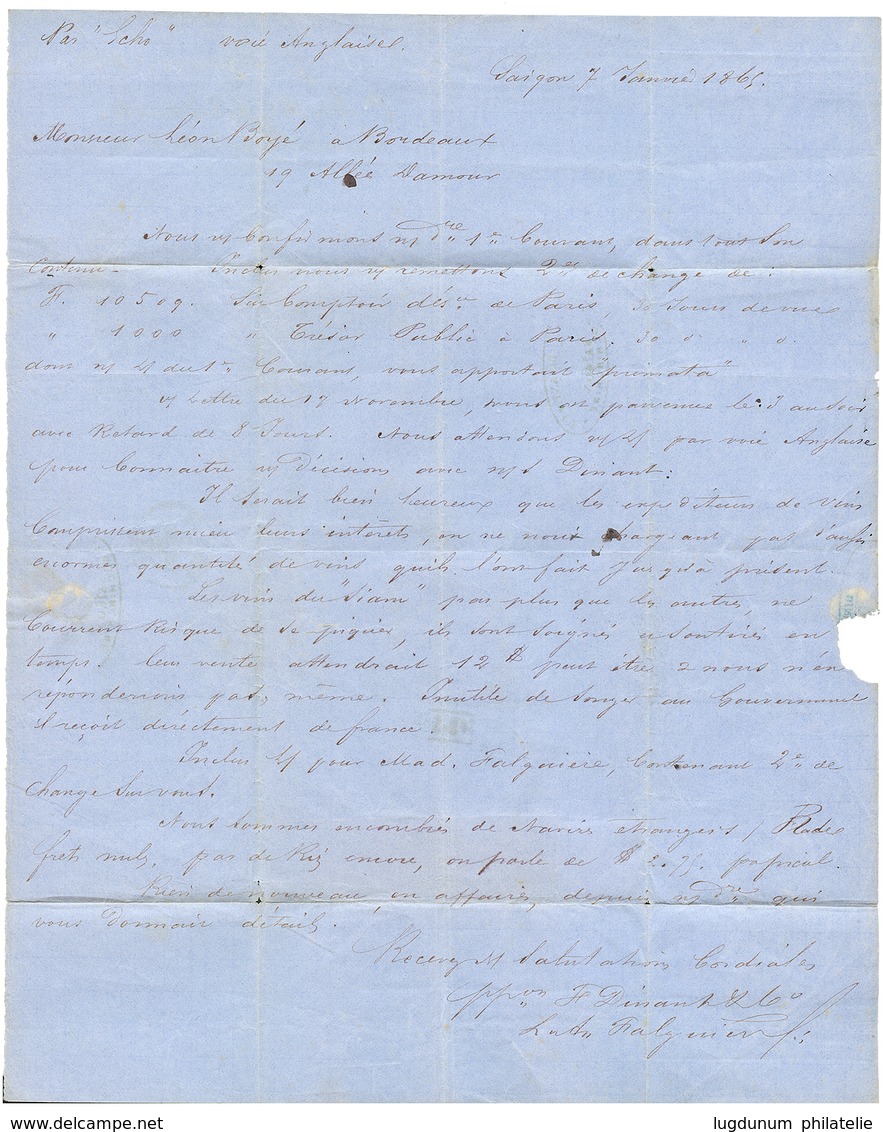 Par "Echo" voie Anglaise.
Saigon 7 Janvié 1865.
Monsieur Léon Boyé a Bordeaux
19 Allée Damour
Nous Confirmons 1e Courant, dans tout Son
Contenu - Inclus nous remettons 2es de change de :
F. 10509. Sur Comptoir de Paris, 30 Jours de vue
" 1000 " Trésor Public à Paris. 30 d° " d°
dont du 1er Courant, vous apportait "primata"
Lettre du 17 Novembre, nous est parvenue le 3 au Soir
avec Retard de 8 Jours. Nous attendons par voie Anglaise
pour Connaitre Décisions avec Dinant :
Il serait bien heureux que les expediteurs de vins
Comprissent mieu leurs interets, en ne nous chargeant pas d'aussi
enormes quantité de vins quils l'ont fait Jusqu'à présent.
Les vins du "Siam" pas plus que les autres, ne
Courrent Risque de se piquer, ils sont soignés et soutirés en
temps. leur vente attendrait 12 $ peut être & nous n'en
réponderions pas, même. Inutile de songer au Gouvernement
il reçoit directement de france.
Inclus pour Mad. Falguière, Contenant 2e de
Change Sur vous.
Nous sommes encombrés de Navires etrangers / Rade
frets nuls, pas de Riz encore, on parle de $ 2.75. papicul.
Rien de nouveau, en affaires, depuis dre qui
vous Donnait détails.
Recevez Salutations Cordiales
ppon F Dinant & Co
Falguière
lugdunum philatelie